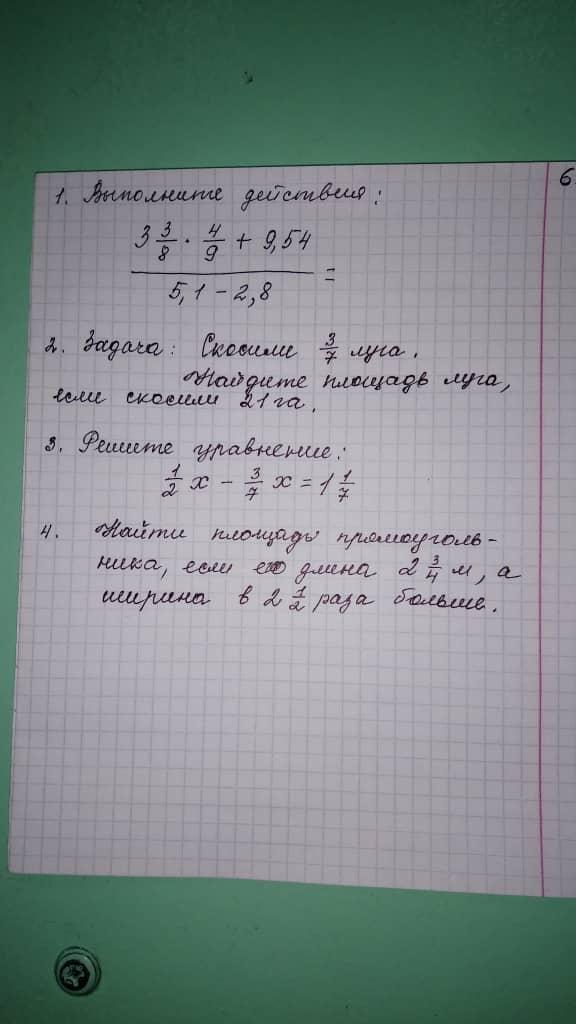 1. Выполните действия:
3 3/8 · 4/9 + 9,54
5,1 - 2,8 =
2. Задача: Скосили 3/7 луга.
Найдите площадь луга,
если скосили 21 га.
3. Решите уравнение:
1/2 x - 3/7 x = 1 1/7
4. Найти площадь прямоуголь-
ника, если его длина 2 3/4 м, а
ширина в 2 1/2 раза больше.
6.